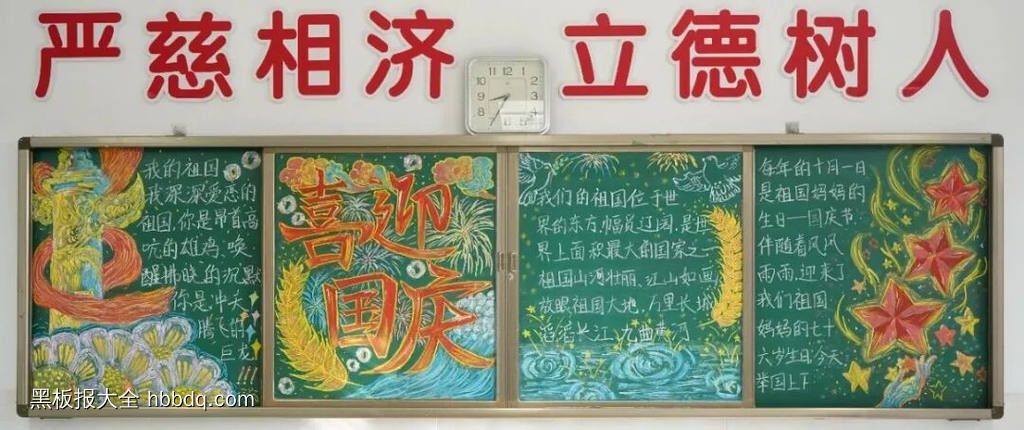 严慈相济 立德树人
我的祖国
我深深爱恋的
祖国,你是昂首高
吭的雄鸡,唤
醒拂晓的沉默
你是冲天
腾飞的
巨龙
!!!
喜迎
国庆
我们的祖国位于世
界的东方,幅员辽阔,是世
界上面积最大的国家之一
祖国山河壮丽,江山如画
放眼祖国大地,万里长城
滔滔长江,九曲黄河
每年的十月一日
是祖国妈妈的
生日—国庆节,
伴随着风风
雨雨,迎来了
我们祖国
妈妈的七十
六岁生日,今天,
举国上下
黑板报大全 hbbdq.com